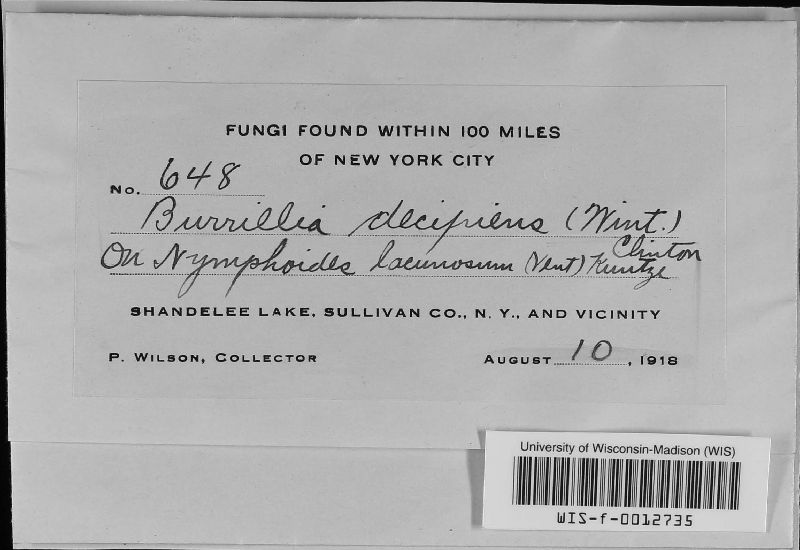 FUNGI FOUND WITHIN 100 MILES
OF NEW YORK CITY
No. 648
Burrillia decipiens (Wint.)
Clinton
On Nymphoides lacunosum (Vent) Kuntze
SHANDELEE LAKE, SULLIVAN CO., N. Y., AND VICINITY
P. WILSON, COLLECTOR AUGUST 10, 1918
University of Wisconsin-Madison (WIS)
WIS-f-0012735